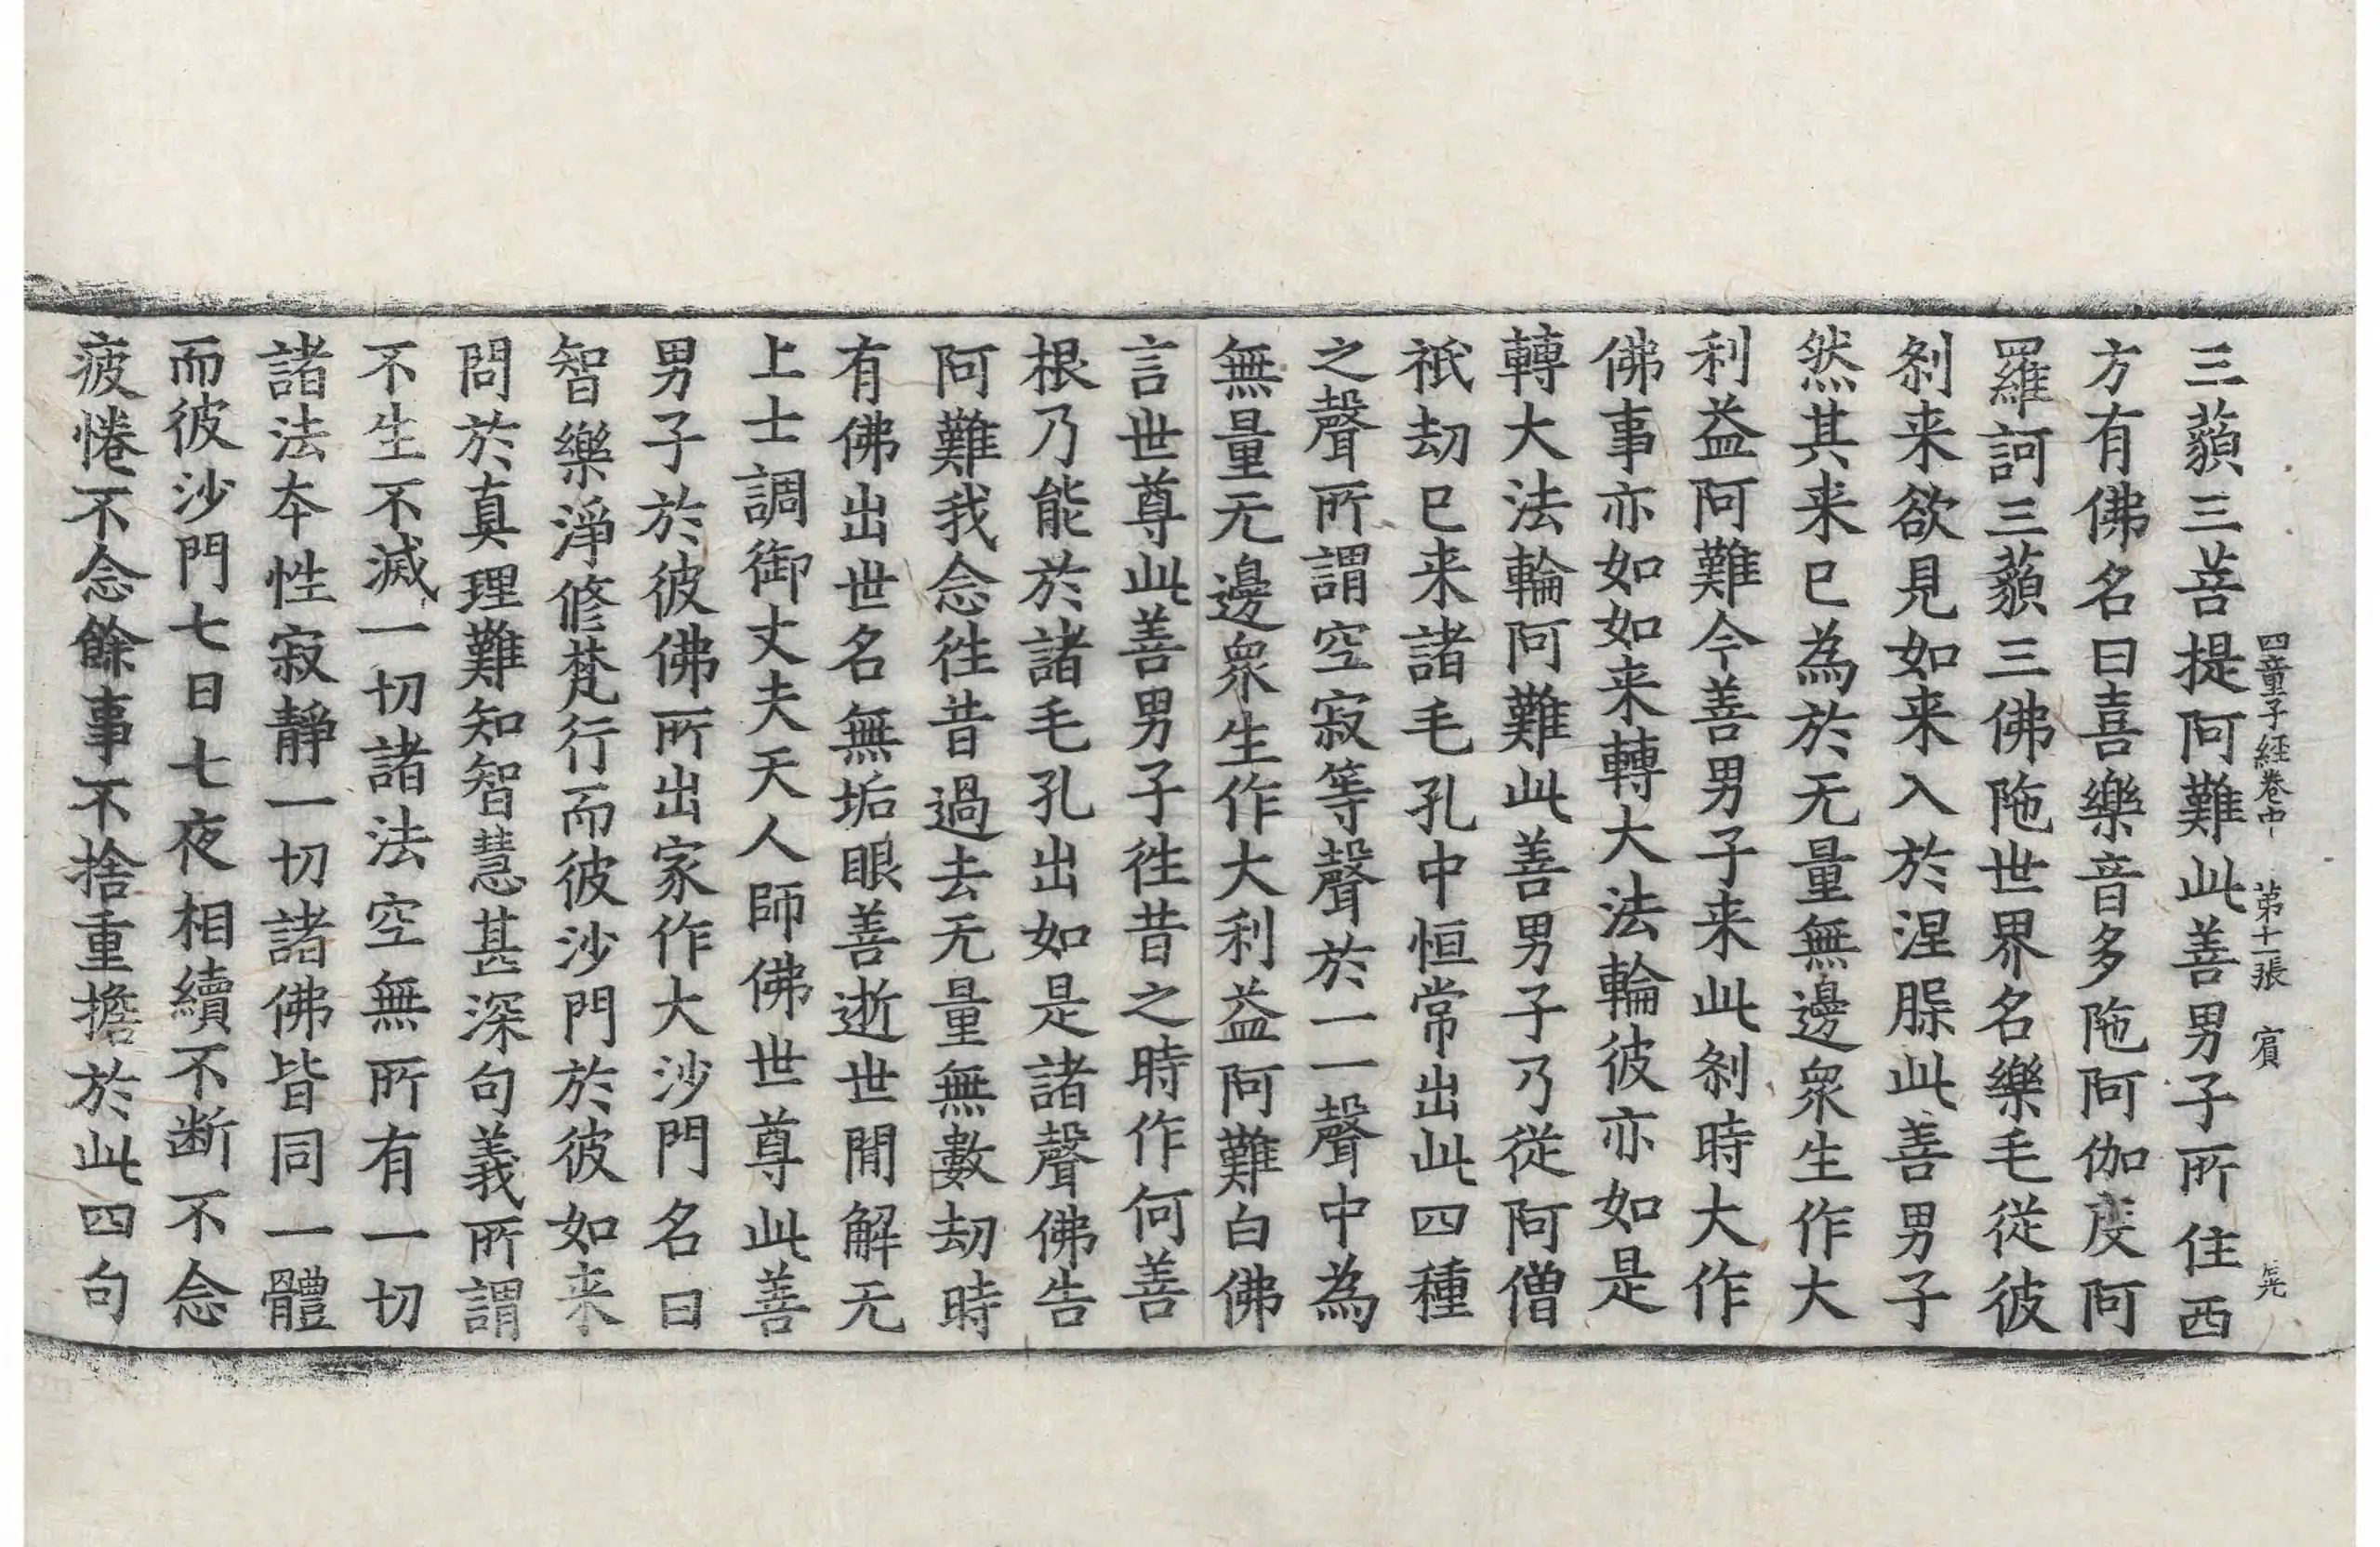 四童子經卷中 第十一張 賓
三藐三菩提阿難此善男子所住西
方有佛名曰喜樂音多陁阿伽度阿
羅訶三藐三佛陁世界名樂毛從彼
刹来欲見如来入於涅脲此善男子
然其来已為於无量無邊衆生作大
利益阿難今善男子来此刹時大作
佛事亦如如来轉大法輪彼亦如是
轉大法輪阿難此善男子乃從阿僧
祇劫已来諸毛孔中恒常出此四種
之聲所謂空寂等聲於一一聲中為
無量无邊衆生作大利益阿難白佛
言世尊此善男子徃昔之時作何善
根乃能於諸毛孔出如是諸聲佛告
阿難我念徃昔過去无量無數劫時
有佛出世名無垢眼善逝世間解无
上士調御丈夫天人師佛世尊此善
男子於彼佛所出家作大沙門名曰
智樂淨修梵行而彼沙門於彼如来
問於真理難知智慧甚深句義所謂
不生不滅一切諸法空無所有一切
諸法夲性寂靜一切諸佛皆同一體
而彼沙門七日七夜相續不断不念
疲惓不念餘事不捨重擔於此四句